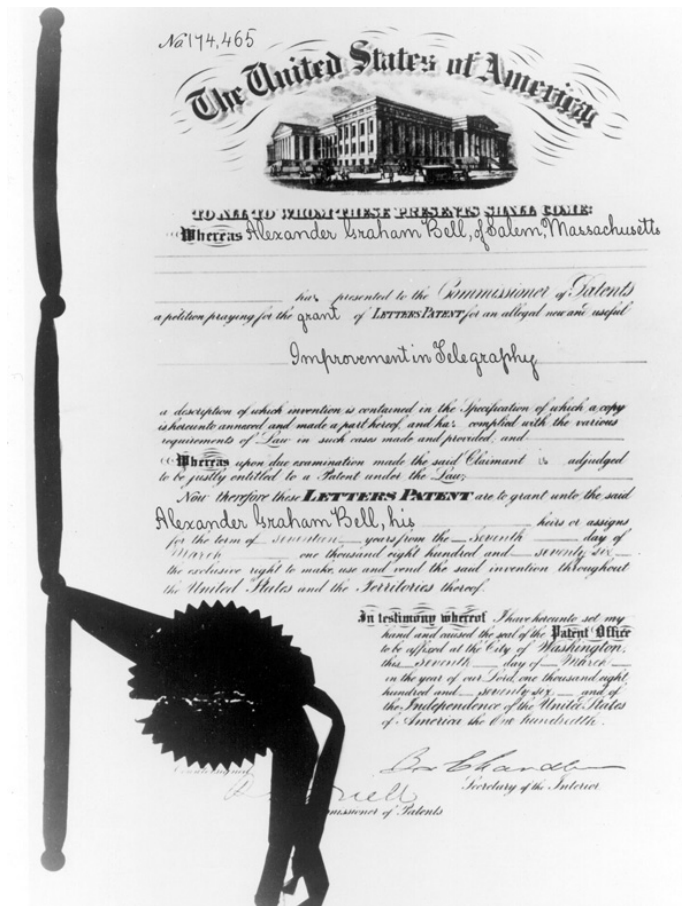 No 174,465
The United States of America
TO ALL TO WHOM THESE PRESENTS SHALL COME:
Whereas Alexander Graham Bell, of Salem, Massachusetts
has presented to the Commissioner of Patents
a petition praying for the grant of LETTERS PATENT for an alleged new and useful
Improvement in Telegraphy
a description of which invention is contained in the Specification of which a copy
is hereunto annexed and made a part hereof, and has complied with the various
requirements of Law in such cases made and provided, and
Whereas upon due examination made the said Claimant is adjudged
to be justly entitled to a Patent under the Law;
Now therefore these LETTERS PATENT are to grant unto the said
Alexander Graham Bell, his heirs or assigns
for the term of seventeen years from the seventh day of
March one thousand eight hundred and seventy six
the exclusive right to make, use and vend the said invention throughout
the United States and the Territories thereof.
In testimony whereof I have hereunto set my
hand and caused the seal of the Patent Office
to be affixed at the City of Washington,
this seventh day of March
in the year of our Lord, one thousand eight
hundred and seventy six and of
the Independence of the United States
of America the one hundredth.
Secretary of the Interior
of Patents